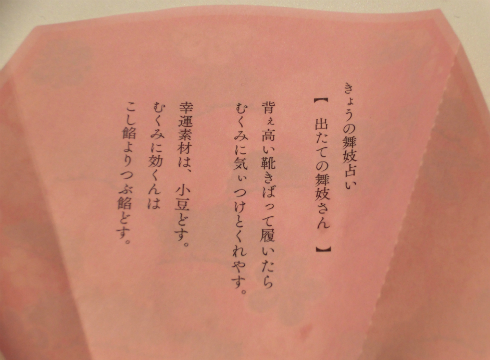 きょうの舞妓占い
【 出たての舞妓さん 】
背ぇ高い靴きばって履いたら
むくみに気ぃつけとくれやす。
幸運素材は、小豆どす。
むくみに効くんは
こし餡よりつぶ餡どす。